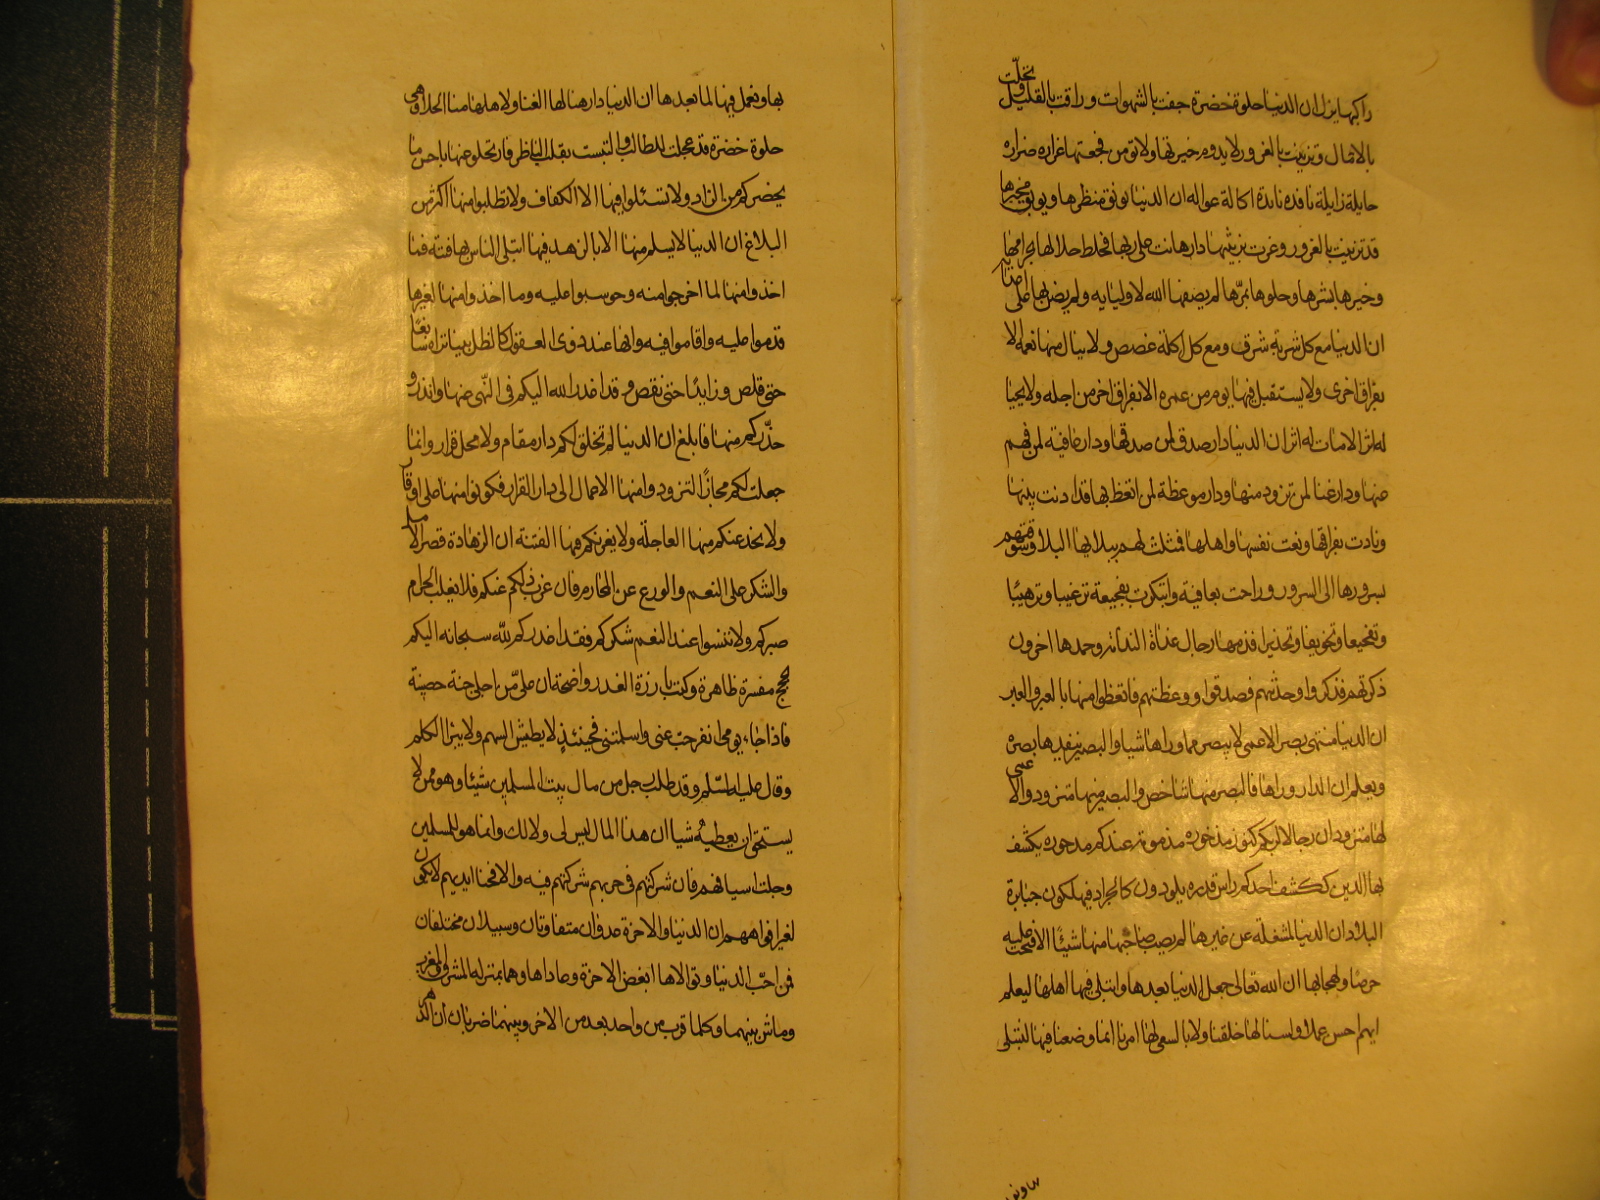 راكبها يزل ان الدنيا حلوة خضرة حفت بالشهوات و راقت بالقليل وتحلّت
بالامال وتزينت بالغرور لا يدوم خيرتها ولا تومن فجعتها غرارة ضرارة
حايلة زايلة نافدة بايدة اكالة عوالة ان الدنيا يونق منظرها ويوبق مخبرها
قد تزينت بالغرور وغرت بزينتها دار هانت على ربها فخلط حلالها بحرامها
وخيرها بشرها وحلوها بمرّها لم يصفها الله لاوليايه ولم يضن بها على اعدايه
ان الدنيا مع كل شربة شرق ومع كل اكلة غصص ولا ينال منها نعمة الا
بفراق اخرى ولا يستقبل فيها يوم من عمره الا بفراق اخر من اجله ولا يحيا
له اثر الا مات له اثر ان الدنيا دار صدق لمن صدقها ودار عافية لمن فهم
عنها ودار غنا لمن تزود منها ودار موعظة لمن اتعظ بها قد اذنت ببينها
ونادت بفراقها ونعت نفسها واهلها فمثلت لهم ببلايها البلا وشوقتهم
بسرورها الى السرور و راحت بعافية وابتكرت بفجيعة ترغيبا وترهيبا
وتفجيعا وتخويفا وتحذيرا فذمها رجال غداة الندامة وحمدها اخرون
ذكرتهم فذكروا وحدثتهم فصدقوا ووعظتهم فاتعظوا منها بالغير والعبر
ان الدنيا منتهى بصر الاعمى لا يبصر مما وراها شيا والبصير ينفدها بصره
ويعلم ان الدار وراها فالبصر منها شاخص والبصير منها متزود والاعمى
لها متزود ان رجالا لديكم كنوز مدخورة مذمومة عندكم مدحورة يكشف
بها الدين ككشف احدكم راس قدره يلوذون كالجراد فيهلكون جبابرة
البلاد ان الدنيا لمشغلة عن غيرها لم يصب صاحبها منها شيئًا الا فتحت عليه
حرصا ولهجا بها ان الله تعالى جعل الدنيا بعدها وابتلى فيها اهلها ليعلم
ايهم احسن عملا ولسنا لها خلقنا ولا بالسعى لها امرنا انما وضعنا فيها لنبتلى
بها ونعمل فيها لما بعدها ان الدنيا دار منا لها الفنا ولاهلها منها الجلا وهي
حلوة خضرة قد عجلت للطالب والتبست بقلب الناظر فارتحلو عنها باحسن ما
يحضركم من الزاد ولا تسئلوا فيها الا الكفاف ولا تطلبوا منها اكثر من
البلاغ ان الدنيا لا يسلم منها الا بالزهد فيها ابتلى الناس بها فتنة فما
اخذوا منها لها اخرجوا منه وحوسبوا عليه وما اخذوا منها لغيرها
قدموا عليه واقاموا فيه وانها عند ذوى العقول كالظل بينا تراه سابغا
حتى قلص و زايدًا حتى نقص وقد اعذر الله اليكم فى النّهى عنها وانذر و
حذّركم منها فابلغ ان الدنيا لم تخلق لكم دار مقام ولا محل قرار وانما
جعلت لكم مجازًا لتزودوا منها الاعمال الى دار القرار فكونوا منها على اوفاز
ولا تخدعنكم منها العاجلة ولا يغرنكم فيها الفتنة ان الزهادة قصر الامل
والشكر على النعم والورع عن المحارم فان عزب ذلكم عنكم فلا يغلب الحرام
صبركم ولا تنسوا عند النعم شكركم فقد اعذركم لله سبحانه اليكم
بحجج مسفرة ظاهرة وكتب بارزة العذر واضحة ان علىّ من اجلى جنة حصينة
فاذا جاء يومى انفرجت عنى واسلمتنى فحينئذٍ لا يطيش السهم ولا يبرأ الكلم
وقال عليه السّلم وقد طلب رجل من مال بيت المسلمين شيئا وهو ممن لا
يستحق ان يعطيه شيا ان هذا المال ليس لى ولا لك وانما هو للمسلمين
وجلب اسيافهم فان شركتهم فى حربهم شركتهم فيه والا فجنا ايديهم لا يكون
لغير افواههم ان الدنيا والاخرة عدوان متفاوتان وسبيلان مختلفان
فمن احبّ الدنيا وتوالاها ابغض الاخرة وعاداها وهما بمنزله المشرق والمغرب
وماش بينهما وكلما قرب من واحد بعد من الاخر وبينهما ضربان ان الدهر